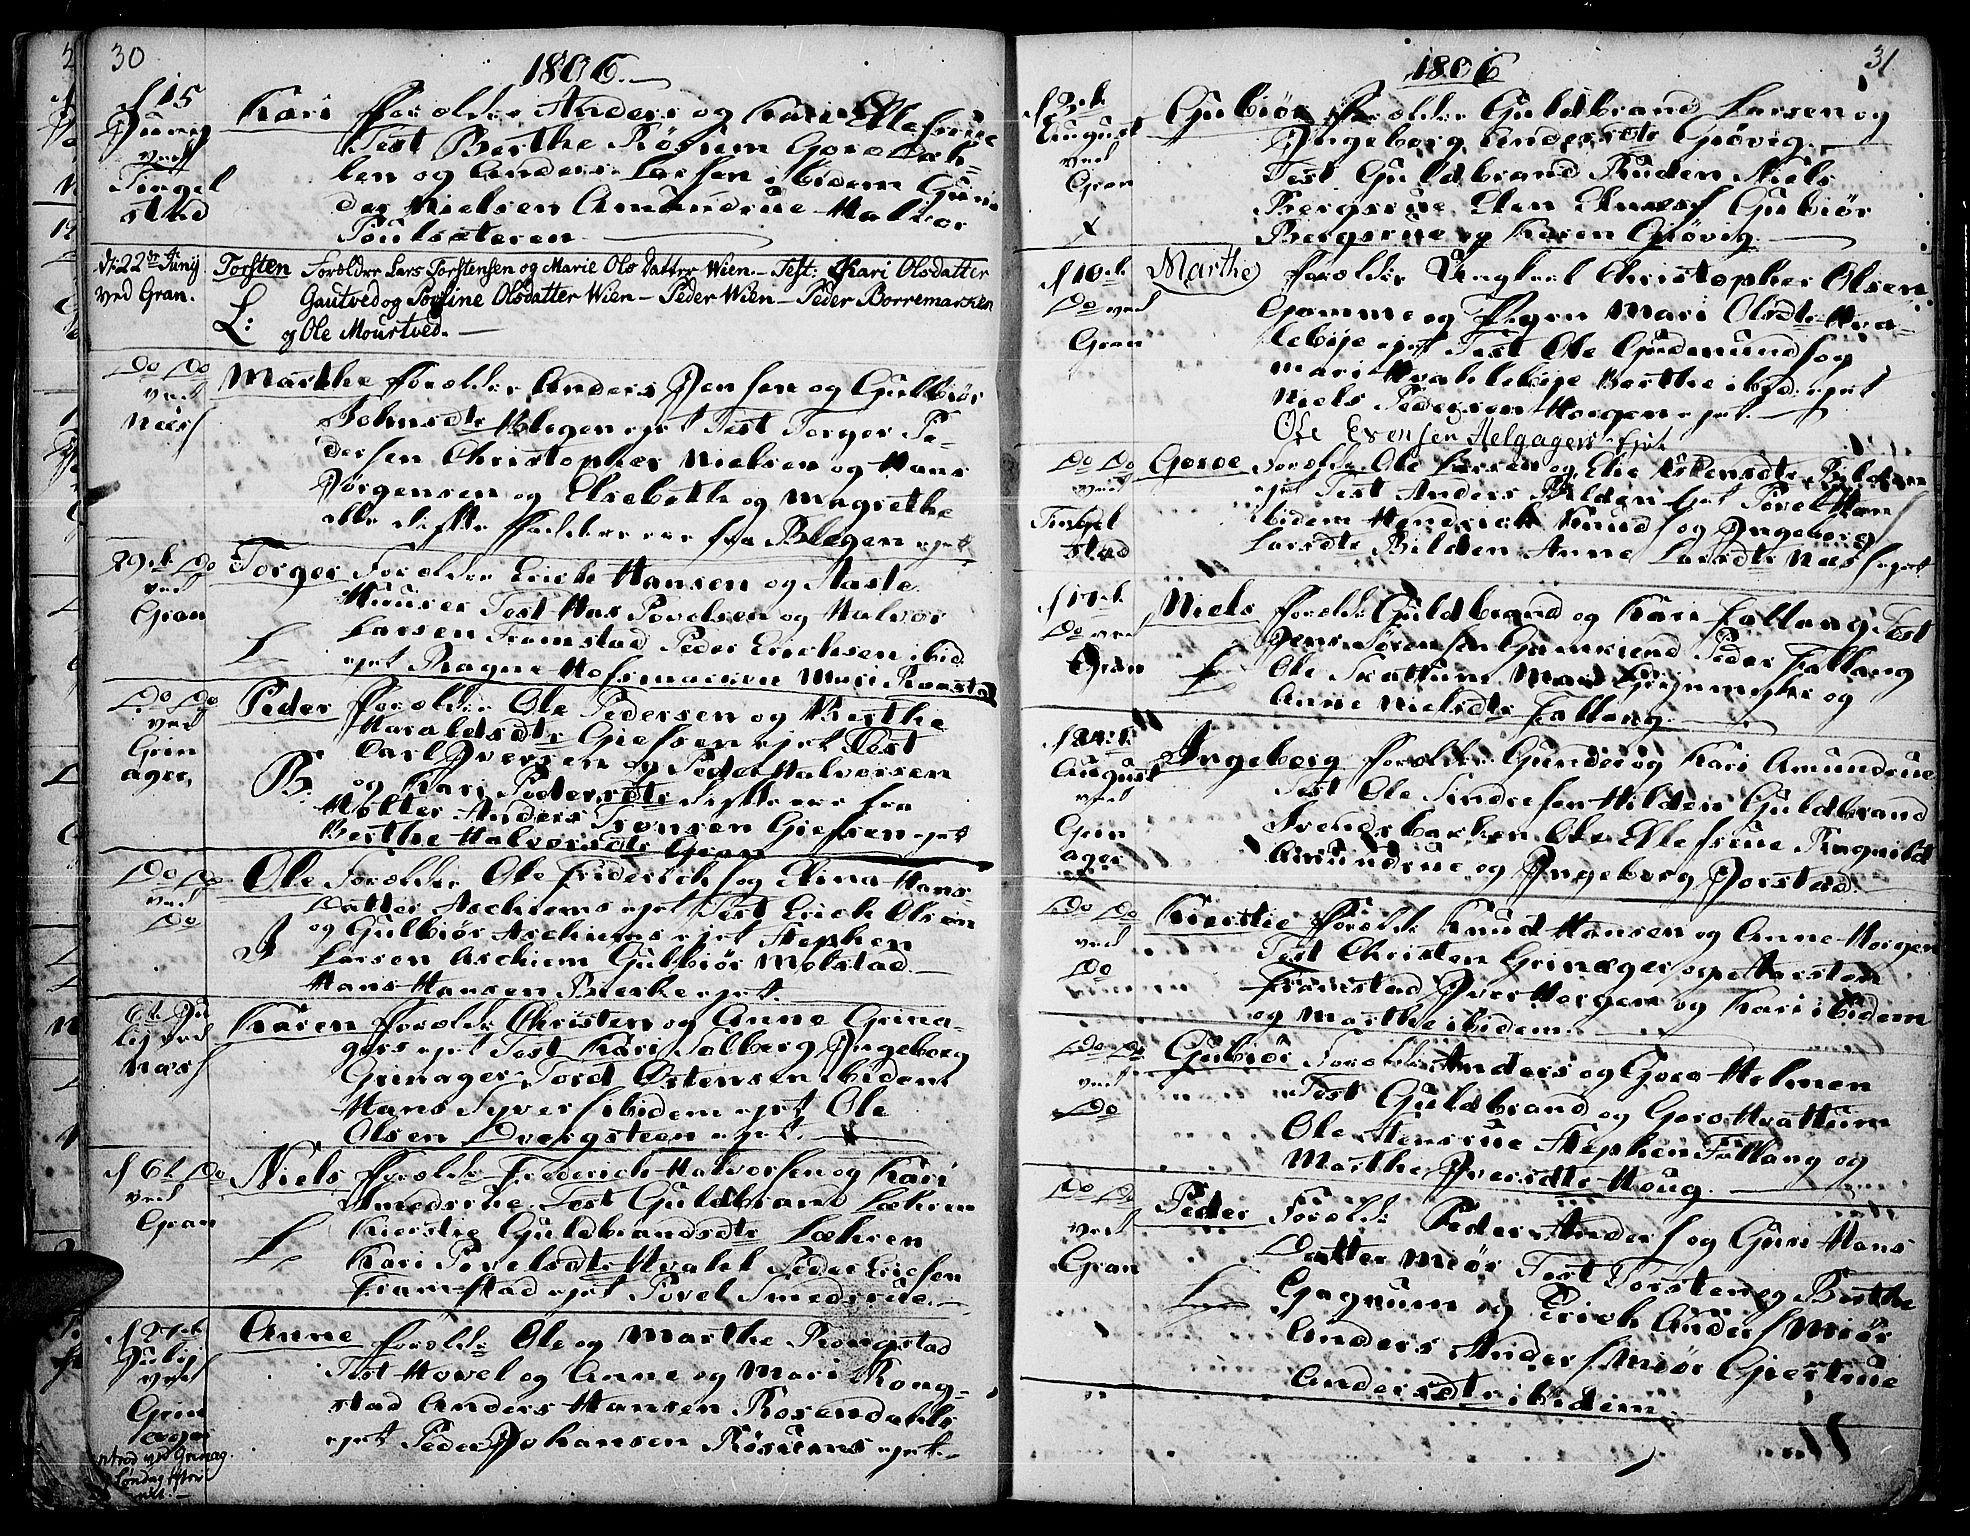 30
1806.
d 15
Juny
ved
Tingel
stad
Kari Forældre Anders og Kari Ellefsrue
Test Berthe Røsum Goro Dæh-
len og Anders Larsen ibidem Gun
der Nielsen Amundrue Halvor
Poulsæteren
d: 22de Juny
ved Gran.
Torsten Forældre Lars Torstensen og Marie Ols Datter Wien – Test: Kari Olsdatter
L: Gautved og Pernine Olsdatter Wien – Peder Wien – Peder Borremarken
og Ole Mourtved. –
Do Do
ved
Næss
Marthe Forældre Anders Jensen og Gulbiør
Johnsdtr Blegen ejet Test Torger Pe-
dersen Christopher Nielsen og Hans
Jørgensen og Elsebeth og Magrethe
alle disse Faddere ere fra Blegen ejet
29de Do
ved
Gran
Torger Forældre Erich Hansen og Aaste
Huuser Test Has Povelsen og Halvor
L Larsen Framstad Peder Erichsen ibid.
ejet Ragne Hofsmarken Mari Raasta
Do Do
ved
Grin
ager,
Peder Forældre Ole Pedersen og Berthe
Haraldsdtr Giefsen ejet Test
Carl Iversen og Peder Halvorsen
B. og Kari Pedersdtr disse ere fra
Molter Anders Trønsen Giefsen ejet
Berthe Halvorsdtr Gran
Do Do
ved
Do
Ole Forældre Ole Friderich og Elina Hans-
Datter Aschiems ejet Test Erich Olsen
og Gulbiør Aschiems ejet Stephen
Larsen Aschiem Gulbiør Molstad. –
Hans Hansen Bierke ejet.
6te Ju
lij ved
Næss
Karen Forældre Christen og Anne Grina-
gers ejet Test Kari Solberg Ingeborg
Grinager Tord Østensen ibidem
Hans Syvers ibidem ejet Ole
Olsen Dvergsteen ejet.
d 6te Do
ved
Gran
Niels Forældre Frederich Halvorsen og Kari
Smedsrue Test Guldbrand Læhren
L Kierstie Guldbrandsdtr Læhren
Kari Povelsdtr Hvalel Peder Erichsen
Framstad ejet Povel Smedsrue. –
d 27de
Julij
ved
Grin
ager
Anne Forældre Ole og Marthe Rongstad
Test Hovel og Anne og Mari Rong-
stad Anders Hansen Rosendahls
ejet Peder Johansen Røsums ejet. –
31
1806
d 3de
August
ved
Gran
Gubiør Forældre Guldbrand Larsen og
Ingeborg Andersdtr Giøvig.
Test Guldbrand Ruden Niels
Bergsrue Elen Gubiør
Bergsrue og Karen Giøvig
d 10de
Do ved
Gran
Marthe Forældre Ungkarl Christopher Olsen
Gamme og Pigen Mari Olsdtr Hva-
lebye ejet Test Ole Gudmunds og
Mari Hvahlebye Berthe ibid: ejet
Niels Pedersen Horgen ejet.
Ole Evensen Helgagers Ejet
Do Do
ved
Tingel
stad
Goroe Forældre Ole Larsen og Elie Bilden
ejet Test Anders Bilden Ejet Povel Hans
ibidem Hendrich Knuds og Ingeborg
Larsdtr Bilden Anne Larsdtr Næs ejet
d 17de
Do ved
Gran
Niels Forældre Guldbrand og Kari Fallang Test
Jens Sørensen Gamkiend Peder Fallang
L Ole Skattum Mari og
Anne Nielsdtr Fallang.
d 24de
August
ved
Grin
ager
Ingeborg Forældre Gunder og Kari Amundrue
Test Ole Sindresen Hilden Guldbrand
Svendsbacken Ole Ellefsrue Ragnild
Amundrue og Ingeborg Jorstad.
Do Do
ved
Do
Kierstie Forældre Knud Hansen og Anne Horgen
Test Christen Grinager og Harsten
Framstad Iver Horgen og Kari ibidem
og Marthe ibidem.
Do Do
ved
Do
Gubiør Forældre Anders og Goro Holmen
Test Guldbrand og Goro Hvattum
Ole Stensrue Stephen Fallang og
Marthe Iversdtr Houg.
Do Do
ved
Gran
Peder Forældre Peder Anders og Guri Hans
Datter Miør Test Torsten og Berthe
L Gagnum og Erich Anders Miør
Anders Anders Miør Giertrue
Andersdtr ibidem